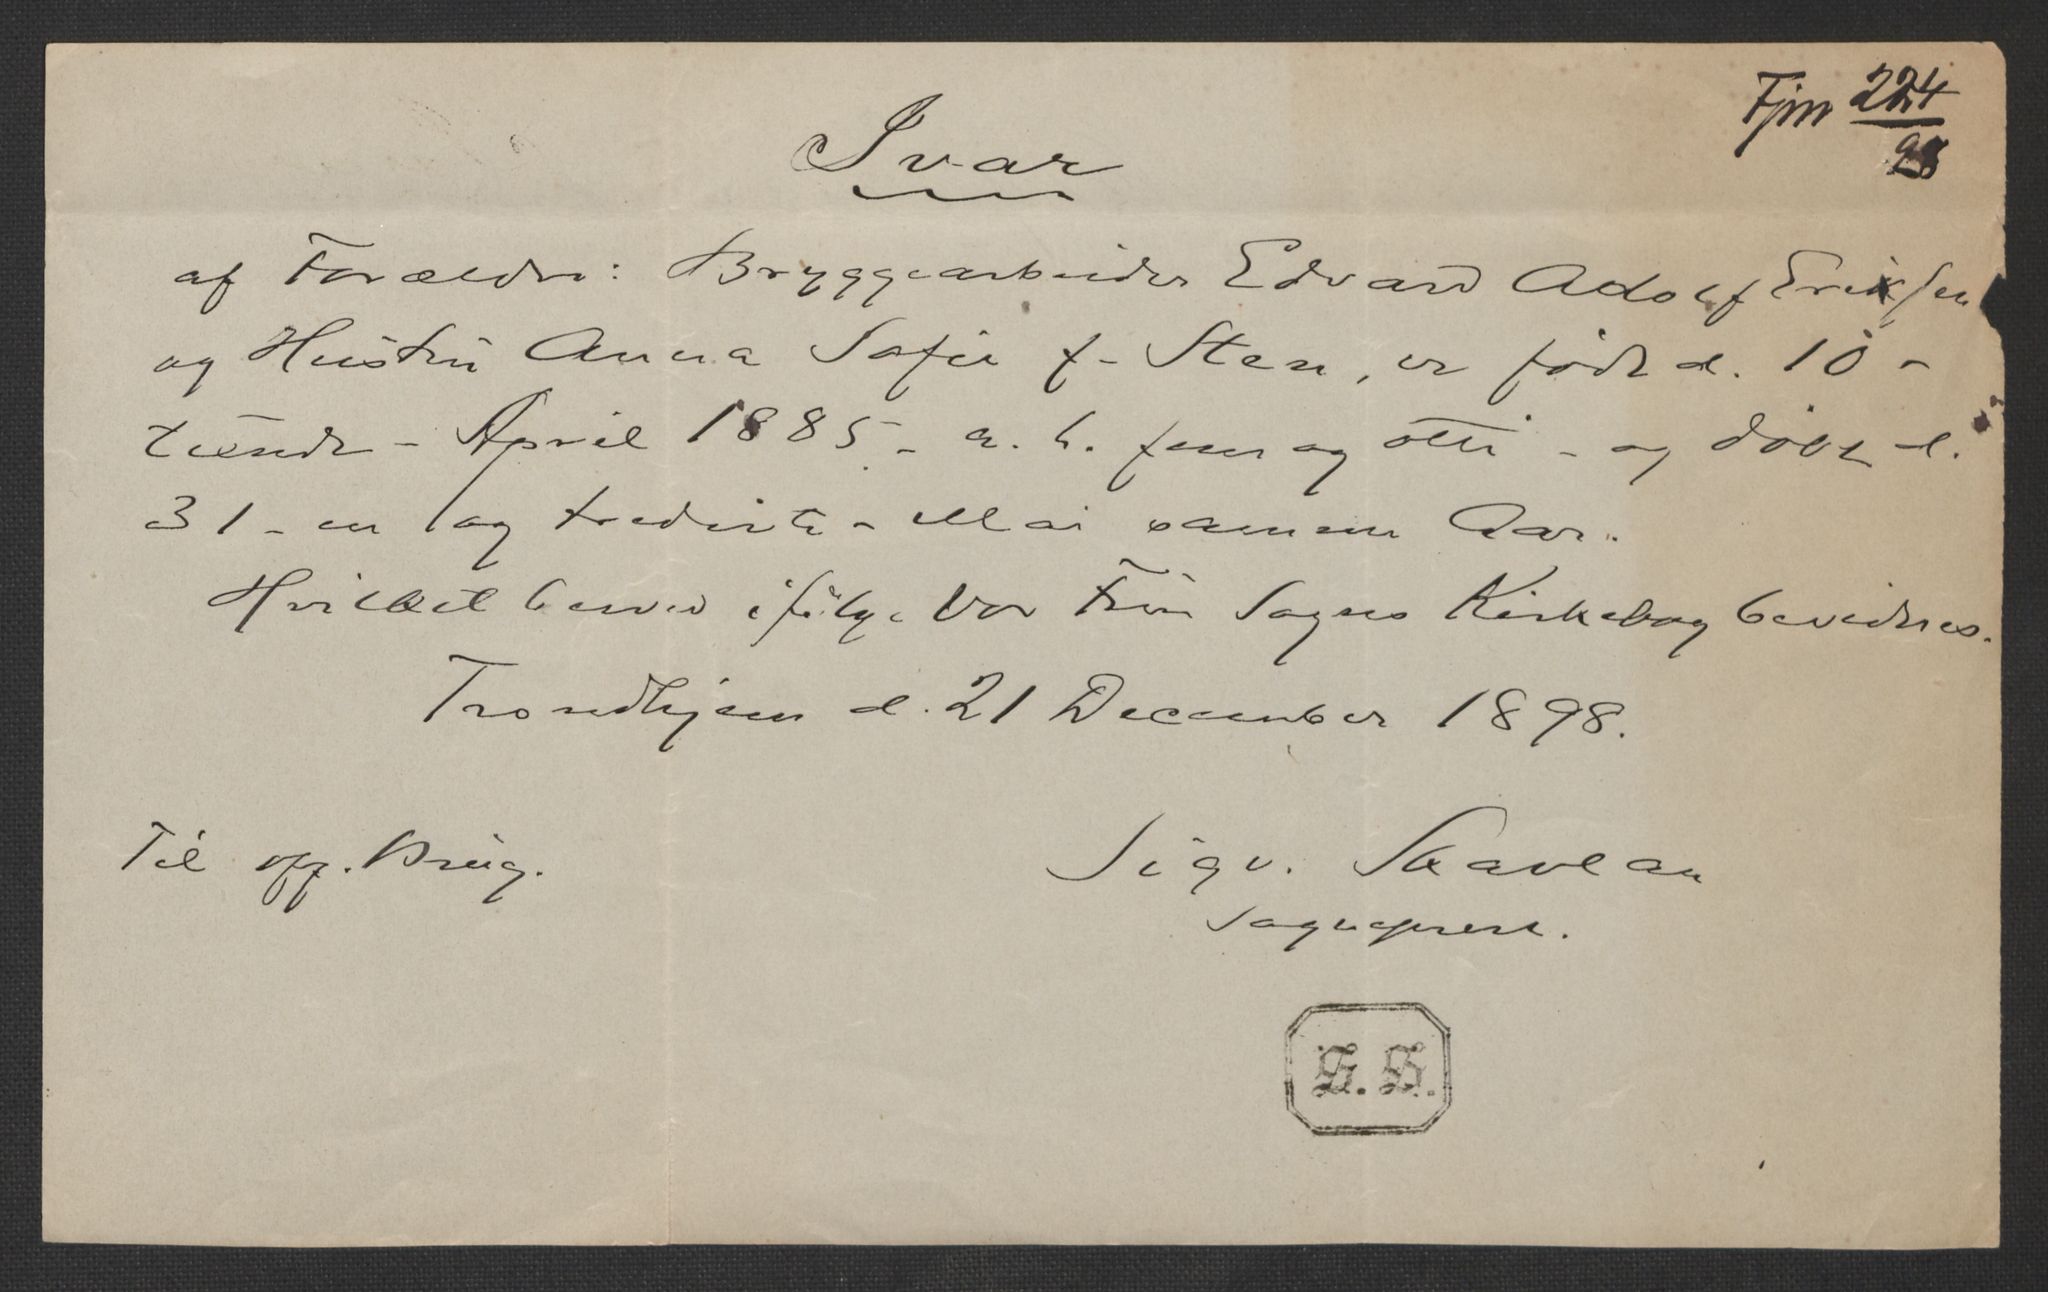 Fjm 224/98
Ivar
af Forældre: Bryggearbeider Edvard Adolf Eriksen
og Hustru Anna Sofie f- Sten, er født d. 10 -
tiende - April 1885 - a. h. fem og otti - og døbt d.
31 - en og tredivte - Mai samme Aar.
Hvilket herved ifølge Vor Frue Sogns Kirkebog bevidnes.
Trondhjem d. 21 December 1898.
Til off. Brug.
Sigv. Skavlan
sogneprest.
S. S.